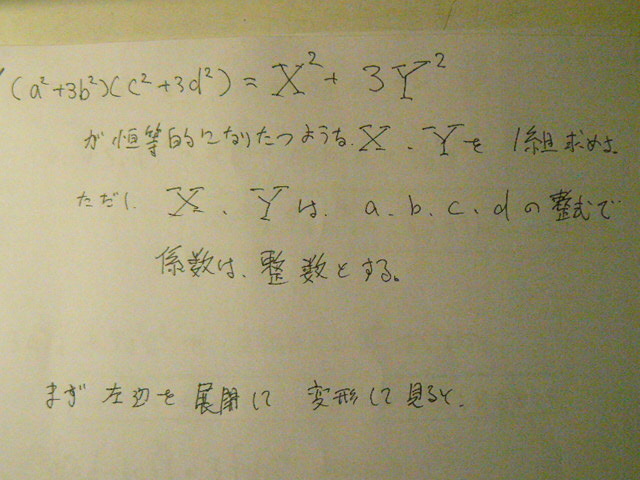 (a²+3b²)(c²+3d²) = X² + 3Y²
が恒等的になりたつような X、Yを 1組求めよ。
ただし X、Yは、a、b、c、dの整式で
係数は、整数とする。
まず左辺を展開して 変形して見ると、